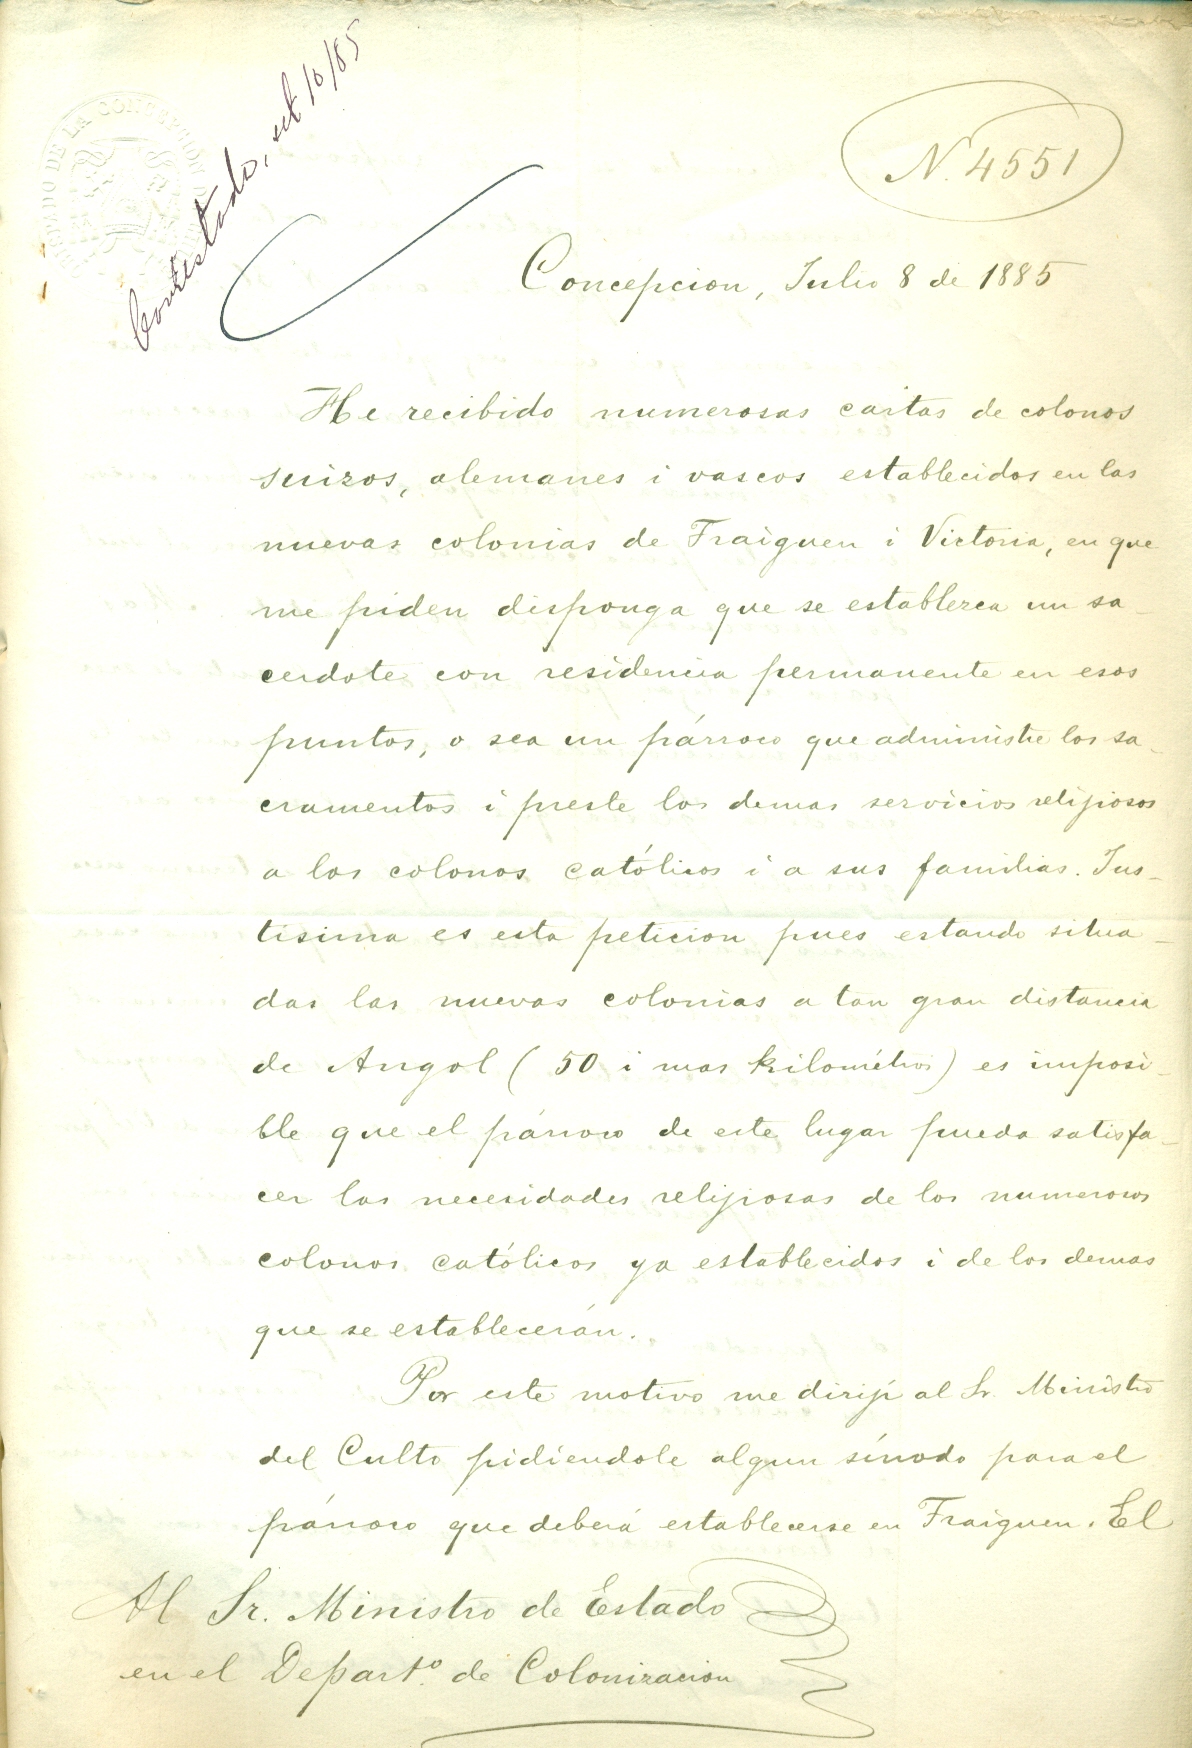 Contestado, set 10/85
N. 4551
Concepcion, Julio 8 de 1885
He recibido numerosas cartas de colonos
suizos, alemanes i vascos establecidos en las
nuevas colonias de Traiguen i Victoria, en que
me piden disponga que se establezca un sa-
cerdote con residencia permanente en esos
puntos, o sea un párroco que administre los sa-
cramentos i preste los demas servicios relijiosos
a los colonos católicos i a sus familias. Jus-
tisima es esta peticion pues estando situa-
das las nuevas colonias a tan gran distancia
de Angol (50 i mas kilométros) es imposi-
ble que el párroco de este lugar pueda satisfa-
cer las necesidades relijiosas de los numerosos
colonos católicos ya establecidos i de los demas
que se establecerán.
Por este motivo me dirijí al Sr. Ministro
del Culto pidiéndole algun sínodo para el
párroco que deberá establecerse en Traiguen. El
Al Sr. Ministro de Estado
en el Depart.º de Colonizacion